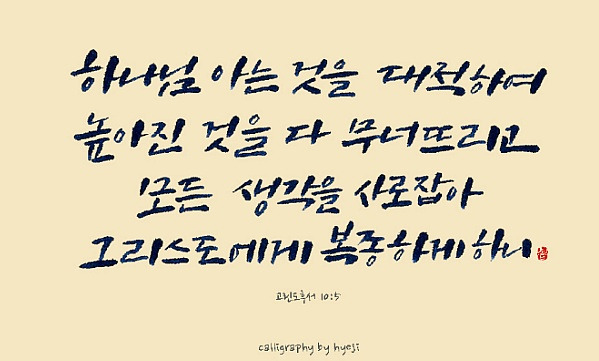 하나님 아는 것을 대적하여
높아진 것을 다 무너뜨리고
모든 생각을 사로잡아
그리스도에게 복종하게 하니
고린도후서 10:5
calligraphy by hyesi